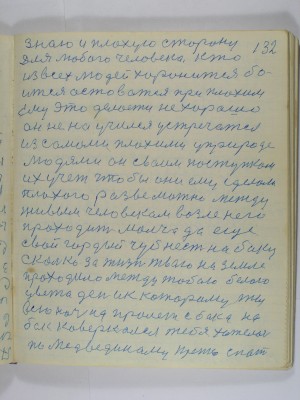 знаю и плохую сторону 132
для любого человека, кто
из всех людей хоронится бо-
ится остоватся при плохим
ему это делоети не хорашо
он не на учился устречатся
из самами плохими у природе
людями он своим поступком
их учет чтобы они ему сделали
плохого разве можно между
живым человеком возле него
проходит молча да еще
свой гордый чуб нест на баку
сколко за жизн тваю на земле
проходило между тобою белого
цвета ден и к которому ты
всю ноч на пролет с бака на
бок коверкался тебя хотелос
по медвединаму спат